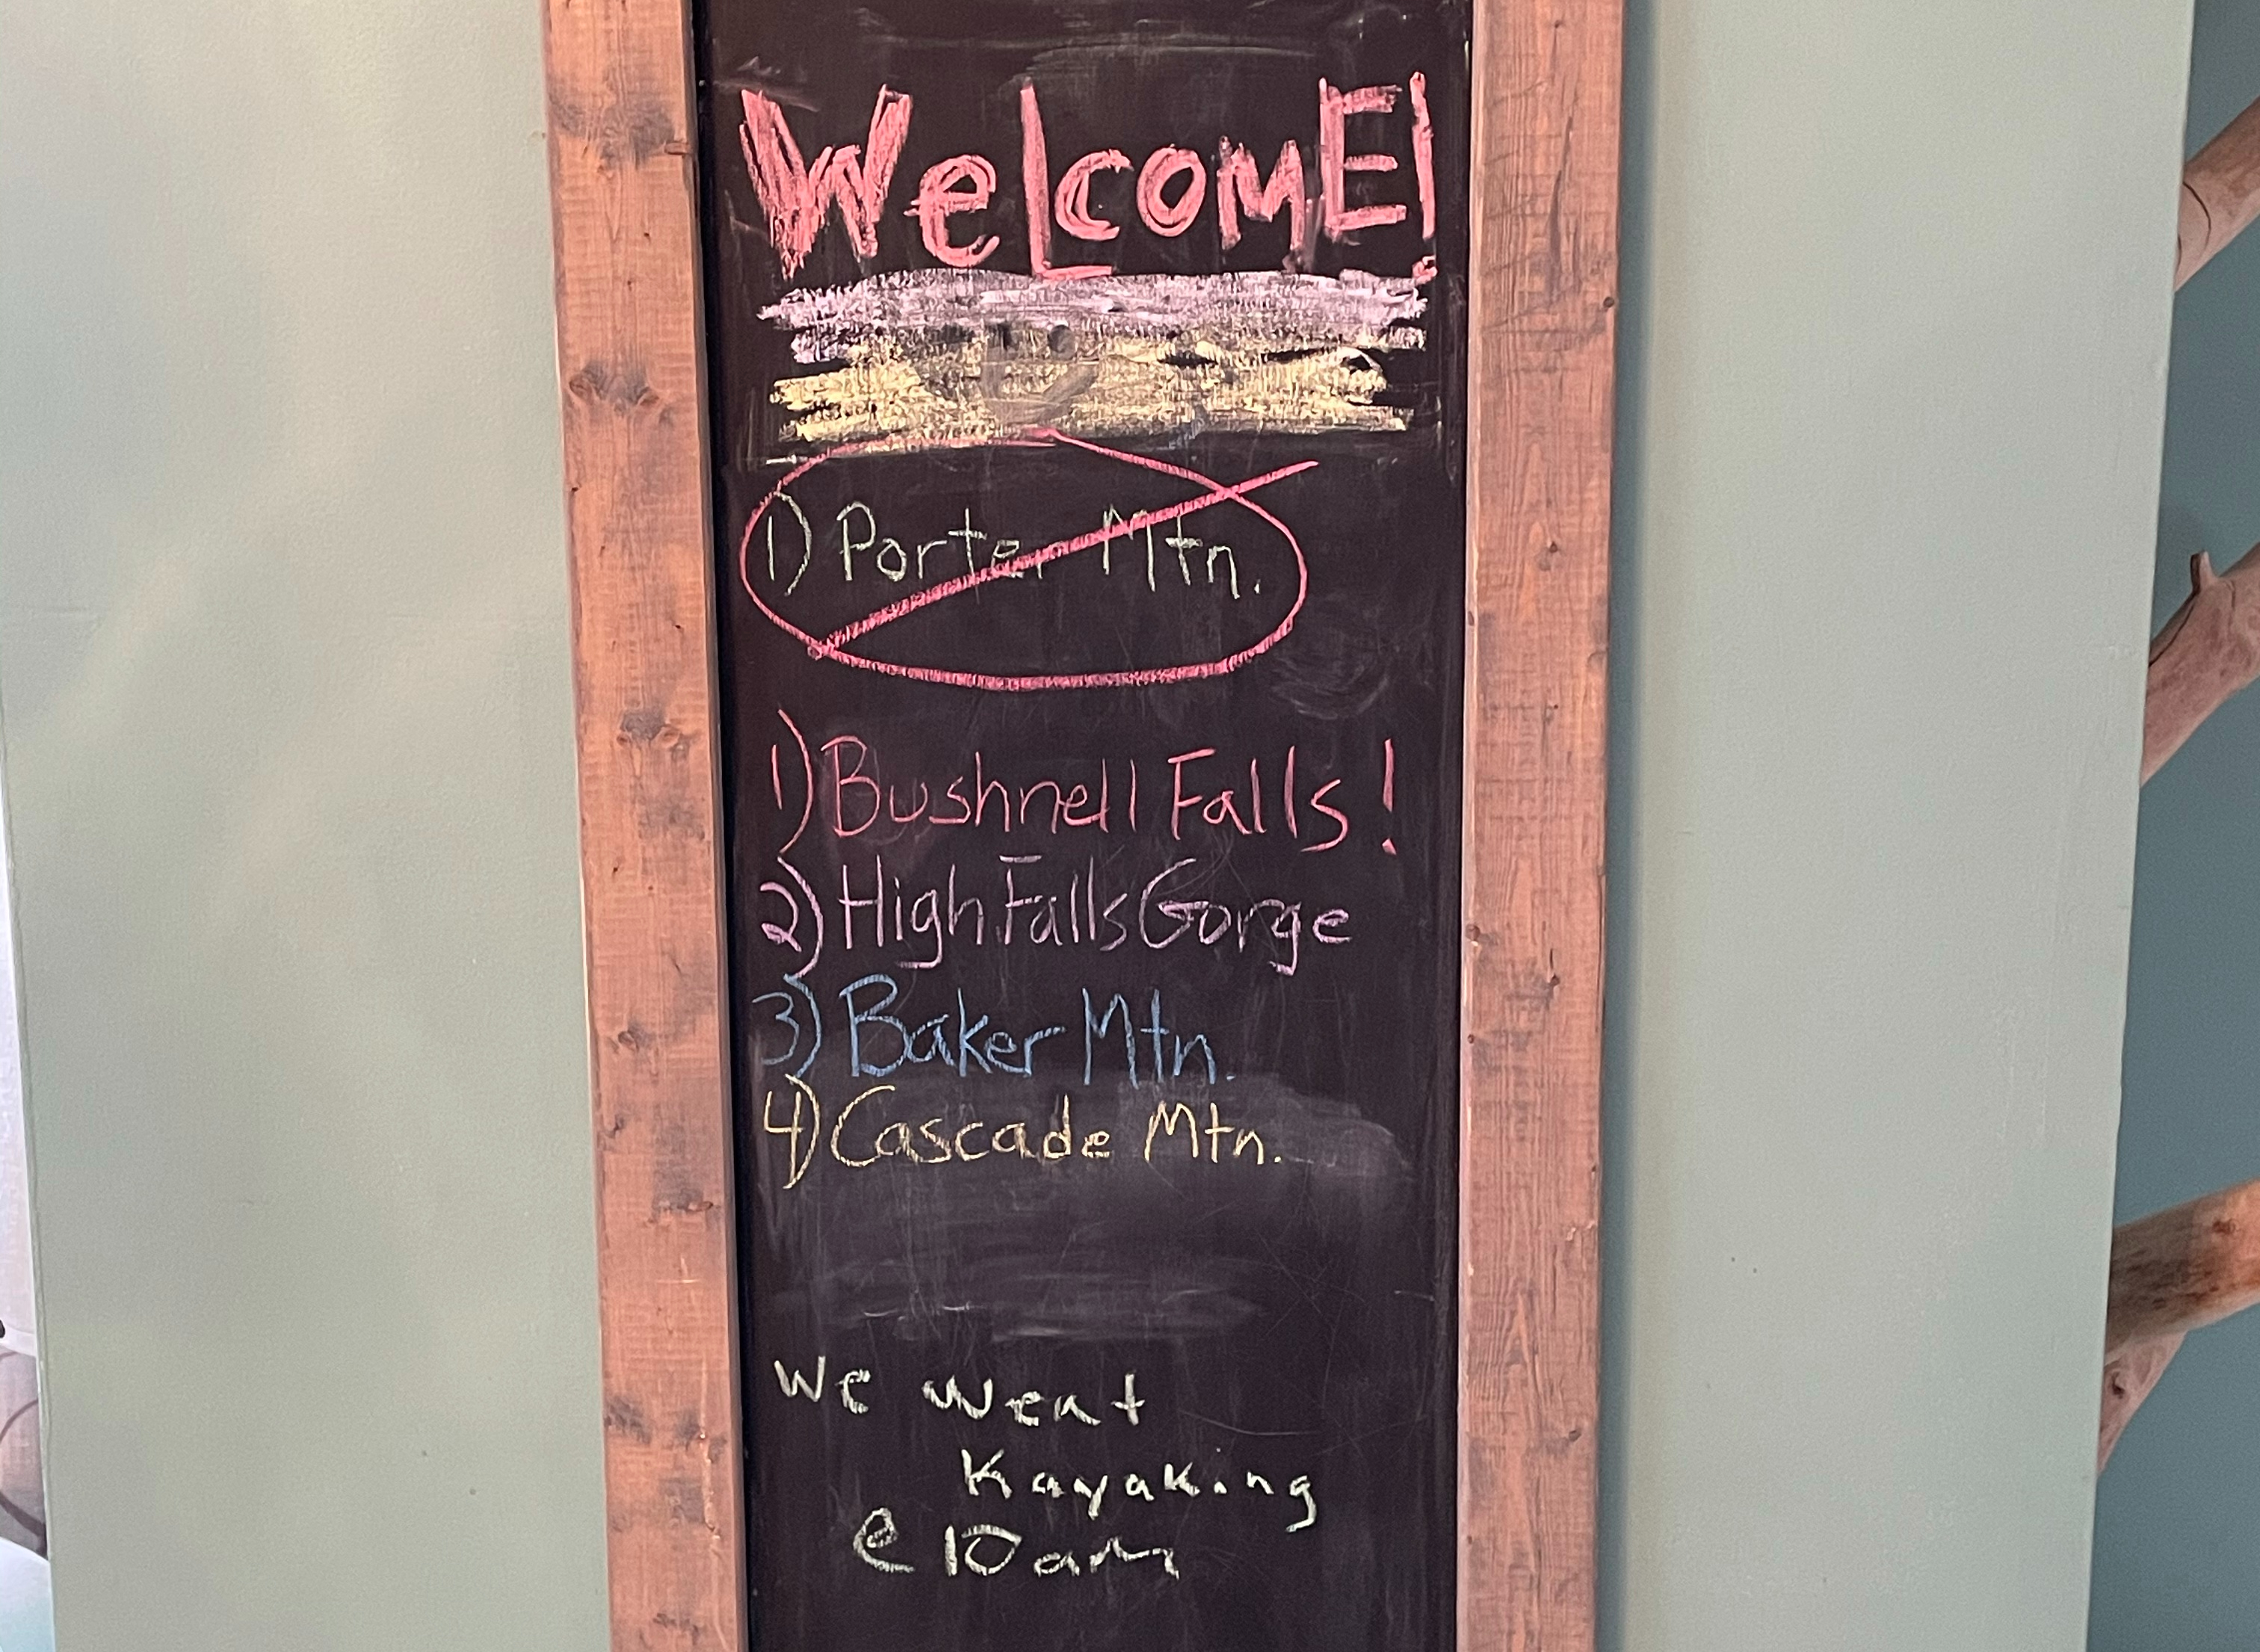 WeLcomE!
1) Porter Mtn.
1) Bushnell Falls!
2) High Falls Gorge
3) Baker Mtn.
4) Cascade Mtn.
We went
Kayaking
@ 10am